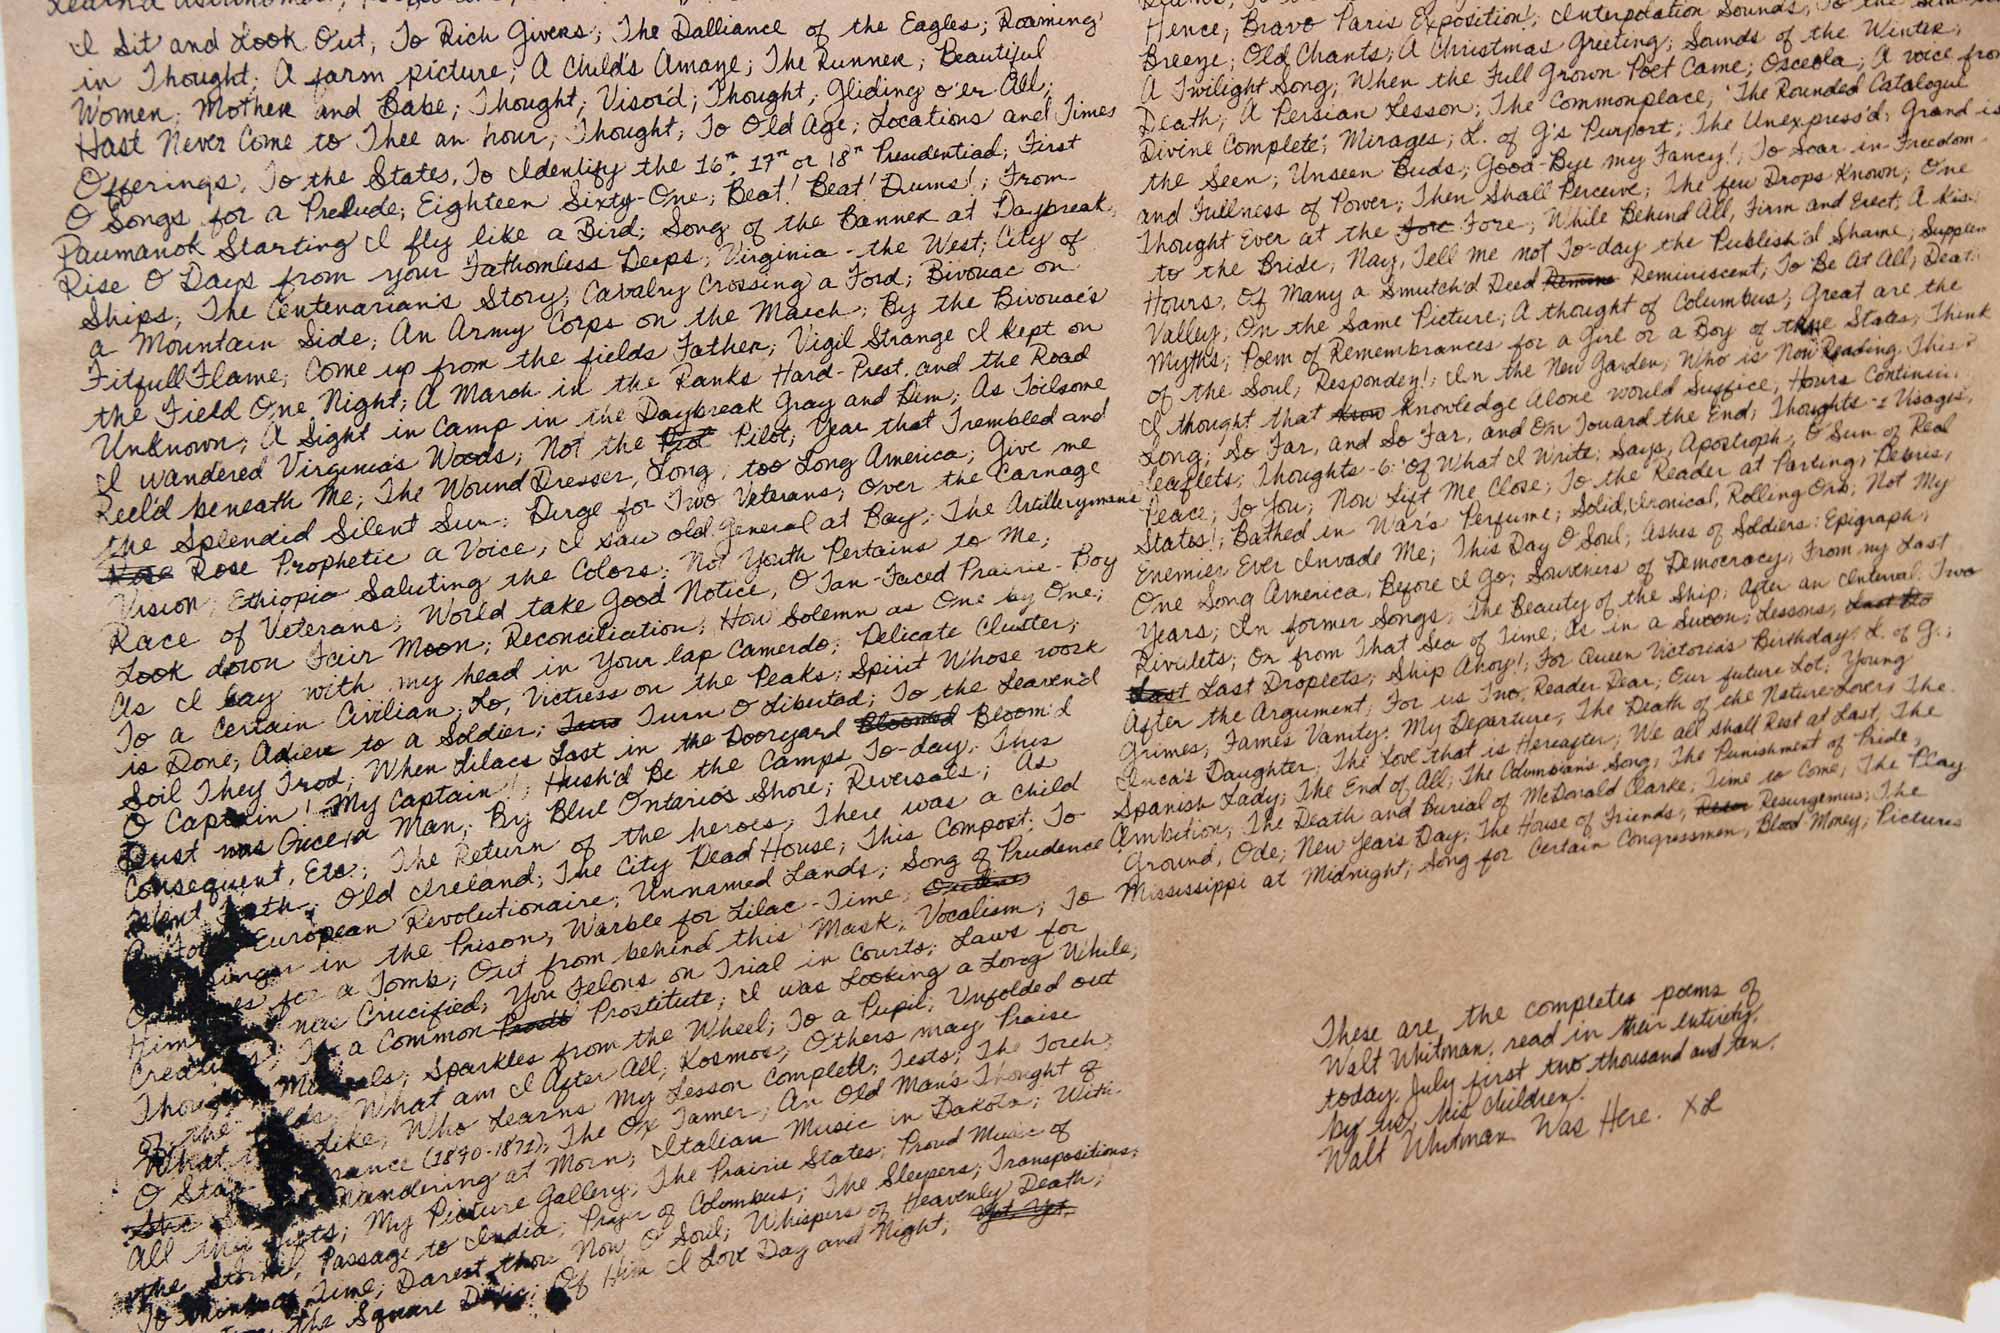 I Sit and Look Out; To Rich Givers; The Dalliance of the Eagles; Roaming
in Thought; A farm picture; A Child's Amaze; The Runner; Beautiful
Women; Mother and Babe; Thought; Visor'd; Thought; Gliding o'er All;
Hast Never Come to Thee an hour; Thought; To Old Age; Locations and Times
Offerings; To the States, To Identify the 16th, 17th or 18th Presidentiad; First
O Songs for a Prelude; Eighteen Sixty-One; Beat! Beat! Drums!; From
Paumanok Starting I fly like a Bird; Song of the Banner at Daybreak;
Rise O Days from your Fathomless Deeps; Virginia - the West; City of
Ships; The Centenarian's Story; Cavalry Crossing a Ford; Bivouac on
a Mountain Side; An Army Corps on the March; By the Bivouac's
Fitfull Flame; Come up from the fields Father; Vigil Strange I kept on
the Field One Night; A March in the Ranks Hard-Prest, and the Road
Unknown; A Sight in Camp in the Daybreak Gray and Dim; As Toilsome
I wandered Virginia's Woods; Not the Pilot; Year that Trembled and
Reel'd beneath Me; The Wound Dresser; Long, too Long America; Give me
the Splendid Silent Sun; Dirge for Two Veterans; Over the Carnage
Rose Prophetic a Voice; I saw old General at Bay; The Artilleryman's
Vision; Ethiopia Saluting the Colors; Not Youth Pertains to Me;
Race of Veterans; World take Good Notice; O Tan-Faced Prairie-Boy
Look down Fair Moon; Reconciliation; How Solemn as One by One;
As I Lay with my head in Your lap Camerdo; Delicate Cluster;
To a Certain Civilian; Lo, Victress on the Peaks; Spirit Whose work
is Done; Adieu to a Soldier; Turn O Libertad; To the Leaven'd
Soil They Trod; When Lilacs Last in the Dooryard Bloomed Bloom'd
O Captain! My Captain!; Hush'd Be the Camps To-day; This
Dust was Once a Man; By Blue Ontario's Shore; Reversals; As
Consequent, Etc.; The Return of the heroes; There was a child
Old Ireland; The City Dead House; This Compost; To
European Revolutionaire; Unnamed Lands; Song of Prudence
in the Prison; Warble for Lilac-Time; Outlines
for a Tomb; Out from behind this Mask; Vocalism; To
Him was Crucified; You Felons on Trial in Courts; Laws for
Creations; To a Common Prostitute; I was Looking a Long While;
Thought; Sparkles from the Wheel; To a Pupil; Unfolded out
of the What am I After All; Kosmos; Others may Praise
What Like; Who Learns My Lesson Complete; Tests; The Torch;
O Star (1870-1871); The Ox Tamer; An Old Man's Thought of
Wandering at Morn; Italian Music in Dakota; With
All thy Gifts; My Picture Gallery; The Prairie States; Proud Music of
the Storm; Passage to India; Prayer of Columbus; The Sleepers; Transpositions;
To Think of Time; Darest thou Now O Soul; Whispers of Heavenly Death;
the Square Deific; Of Him I Love Day and Night; Yet Yet,
Hence; Bravo Paris Exposition!; Interpolation Sounds; To the
Breeze; Old Chants; A Christmas Greeting; Sounds of the Winter;
A Twilight Song; When the Full Grown Poet Came; Osceola; A voice from
Death; A Persian Lesson; The Commonplace; 'The Rounded Catalogue
Divine Complete'; Mirages; L. of G's Purport; The Unexpress'd; Grand is
the Seen; Unseen Buds; Good-Bye my Fancy!; To Soar in Freedom
and Fullness of Power; Then Shall Perceive; The few Drops Known; One
Thought Ever at the Fore; While Behind All, Firm and Erect; A Kiss
to the Bride; Nay, Tell me not To-day the Publish'd Shame; Supplem
Hours; Of Many a Smutch'd Deed Reminiscent; To Be At All; Death
Valley; On the Same Picture; A thought of Columbus; Great are the
Myths; Poem of Remembrances for a Girl or a Boy of these States; Think
of the Soul; Respondez!; In the New Garden; Who is Now Reading This?
I thought that Knowledge Alone would Suffice; Hours Continuing
Long; So Far, and So Far, and On Toward the End; Thoughts - 1 Visages;
Leaflets; Thoughts - 6: 'Of What I Write'; Says; Apostroph; O Sun of Real
Peace; To You; Now Lift Me Close; To the Reader at Parting; Debris;
States!; Bathed in War's Perfume; Solid, Ironical, Rolling Orb; Not My
Enemies Ever Invade Me; This Day O Soul; Ashes of Soldiers: Epigraph;
One Song America, Before I Go; Souvenirs of Democracy; From my Last
Years; In former Songs; The Beauty of the Ship; After an Interval; Two
Rivulets; Or from That Sea of Time; As in a Swoon; Lessons;
Last Last Droplets; Ship Ahoy!; For Queen Victoria's Birthday; L. of G.;
After the Argument; For us Two, Reader Dear; Our future Lot; Young
Grimes; Fame's Vanity; My Departure; The Death of the Nature-Lover; The
Inca's Daughter; The Love that is Hereafter; We all shall Rest at Last; The
Spanish Lady; The End of All; The Columbian's Song; The Punishment of Pride;
Ambition; The Death and Burial of McDonald Clarke; Time to Come; The Play
Ground; Ode; New Year's Day; The House of Friends; Resurgemus; The
Mississippi at Midnight; Song for Certain Congressmen; Blood Money; Pictures
These are the completes poems of
Walt Whitman, read in their entirety,
today, July first two thousand and ten,
by us, his children!
Walt Whitman Was Here. XL